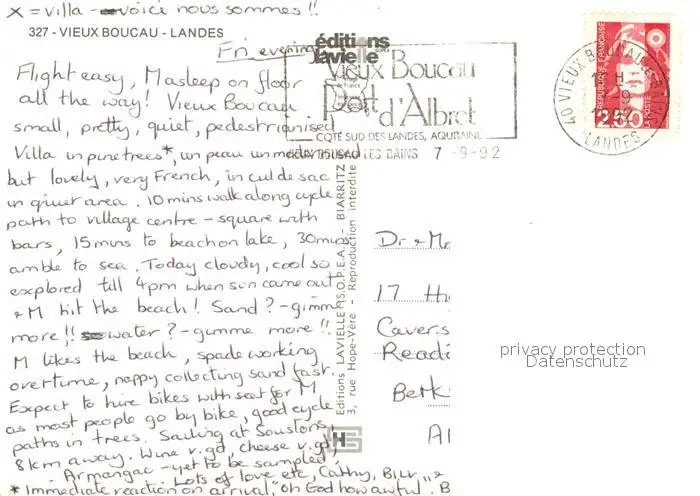 X = villa - voici nous sommes !!
327 - VIEUX BOUCAU - LANDES
Fri evening
Flight easy, M asleep on floor
all the way! Vieux Boucau
small, pretty, quiet, pedestrianised
Villa in pinetrees*, un peu un modernised
but lovely, very French, in cul de sac
in quiet area. 10 mins walk along cycle
path to village centre - square with
bars, 15 mins to beach on lake, 30 mins
amble to sea. Today cloudy, cool so
explored till 4pm when sun came out
& M hit the beach! Sand? - gimme
more!! water? - gimme more!!
M likes the beach, spade working
overtime, nappy collecting sand fast.
Expect to hire bikes with seat for M
as most people go by bike, good cycle
paths in trees. Sailing at Soustons
8km away. Wine v.gd, cheese v.gd,
Armangac - yet to be sampled!
Lots of love etc, Cathy, Bill, &
* Immediate reaction on arrival, "oh God how awful. B
éditions
lavielle
Vieux Boucau
Port d'Albret
COTE SUD DES LANDES, AQUITAINE
7-9-92
40 VIEUX BOUCAU LES BAINS
LANDES
REPUBLIQUE FRANÇAISE
LA POSTE
2,50
Editions LAVIELLE (S.O.P.E.A.) - BIARRITZ
3, rue Hope-Vère - Reproduction interdite
Dr & Mr
17 Hi
Cavers
Readi
Berk
privacy protection
Datenschutz